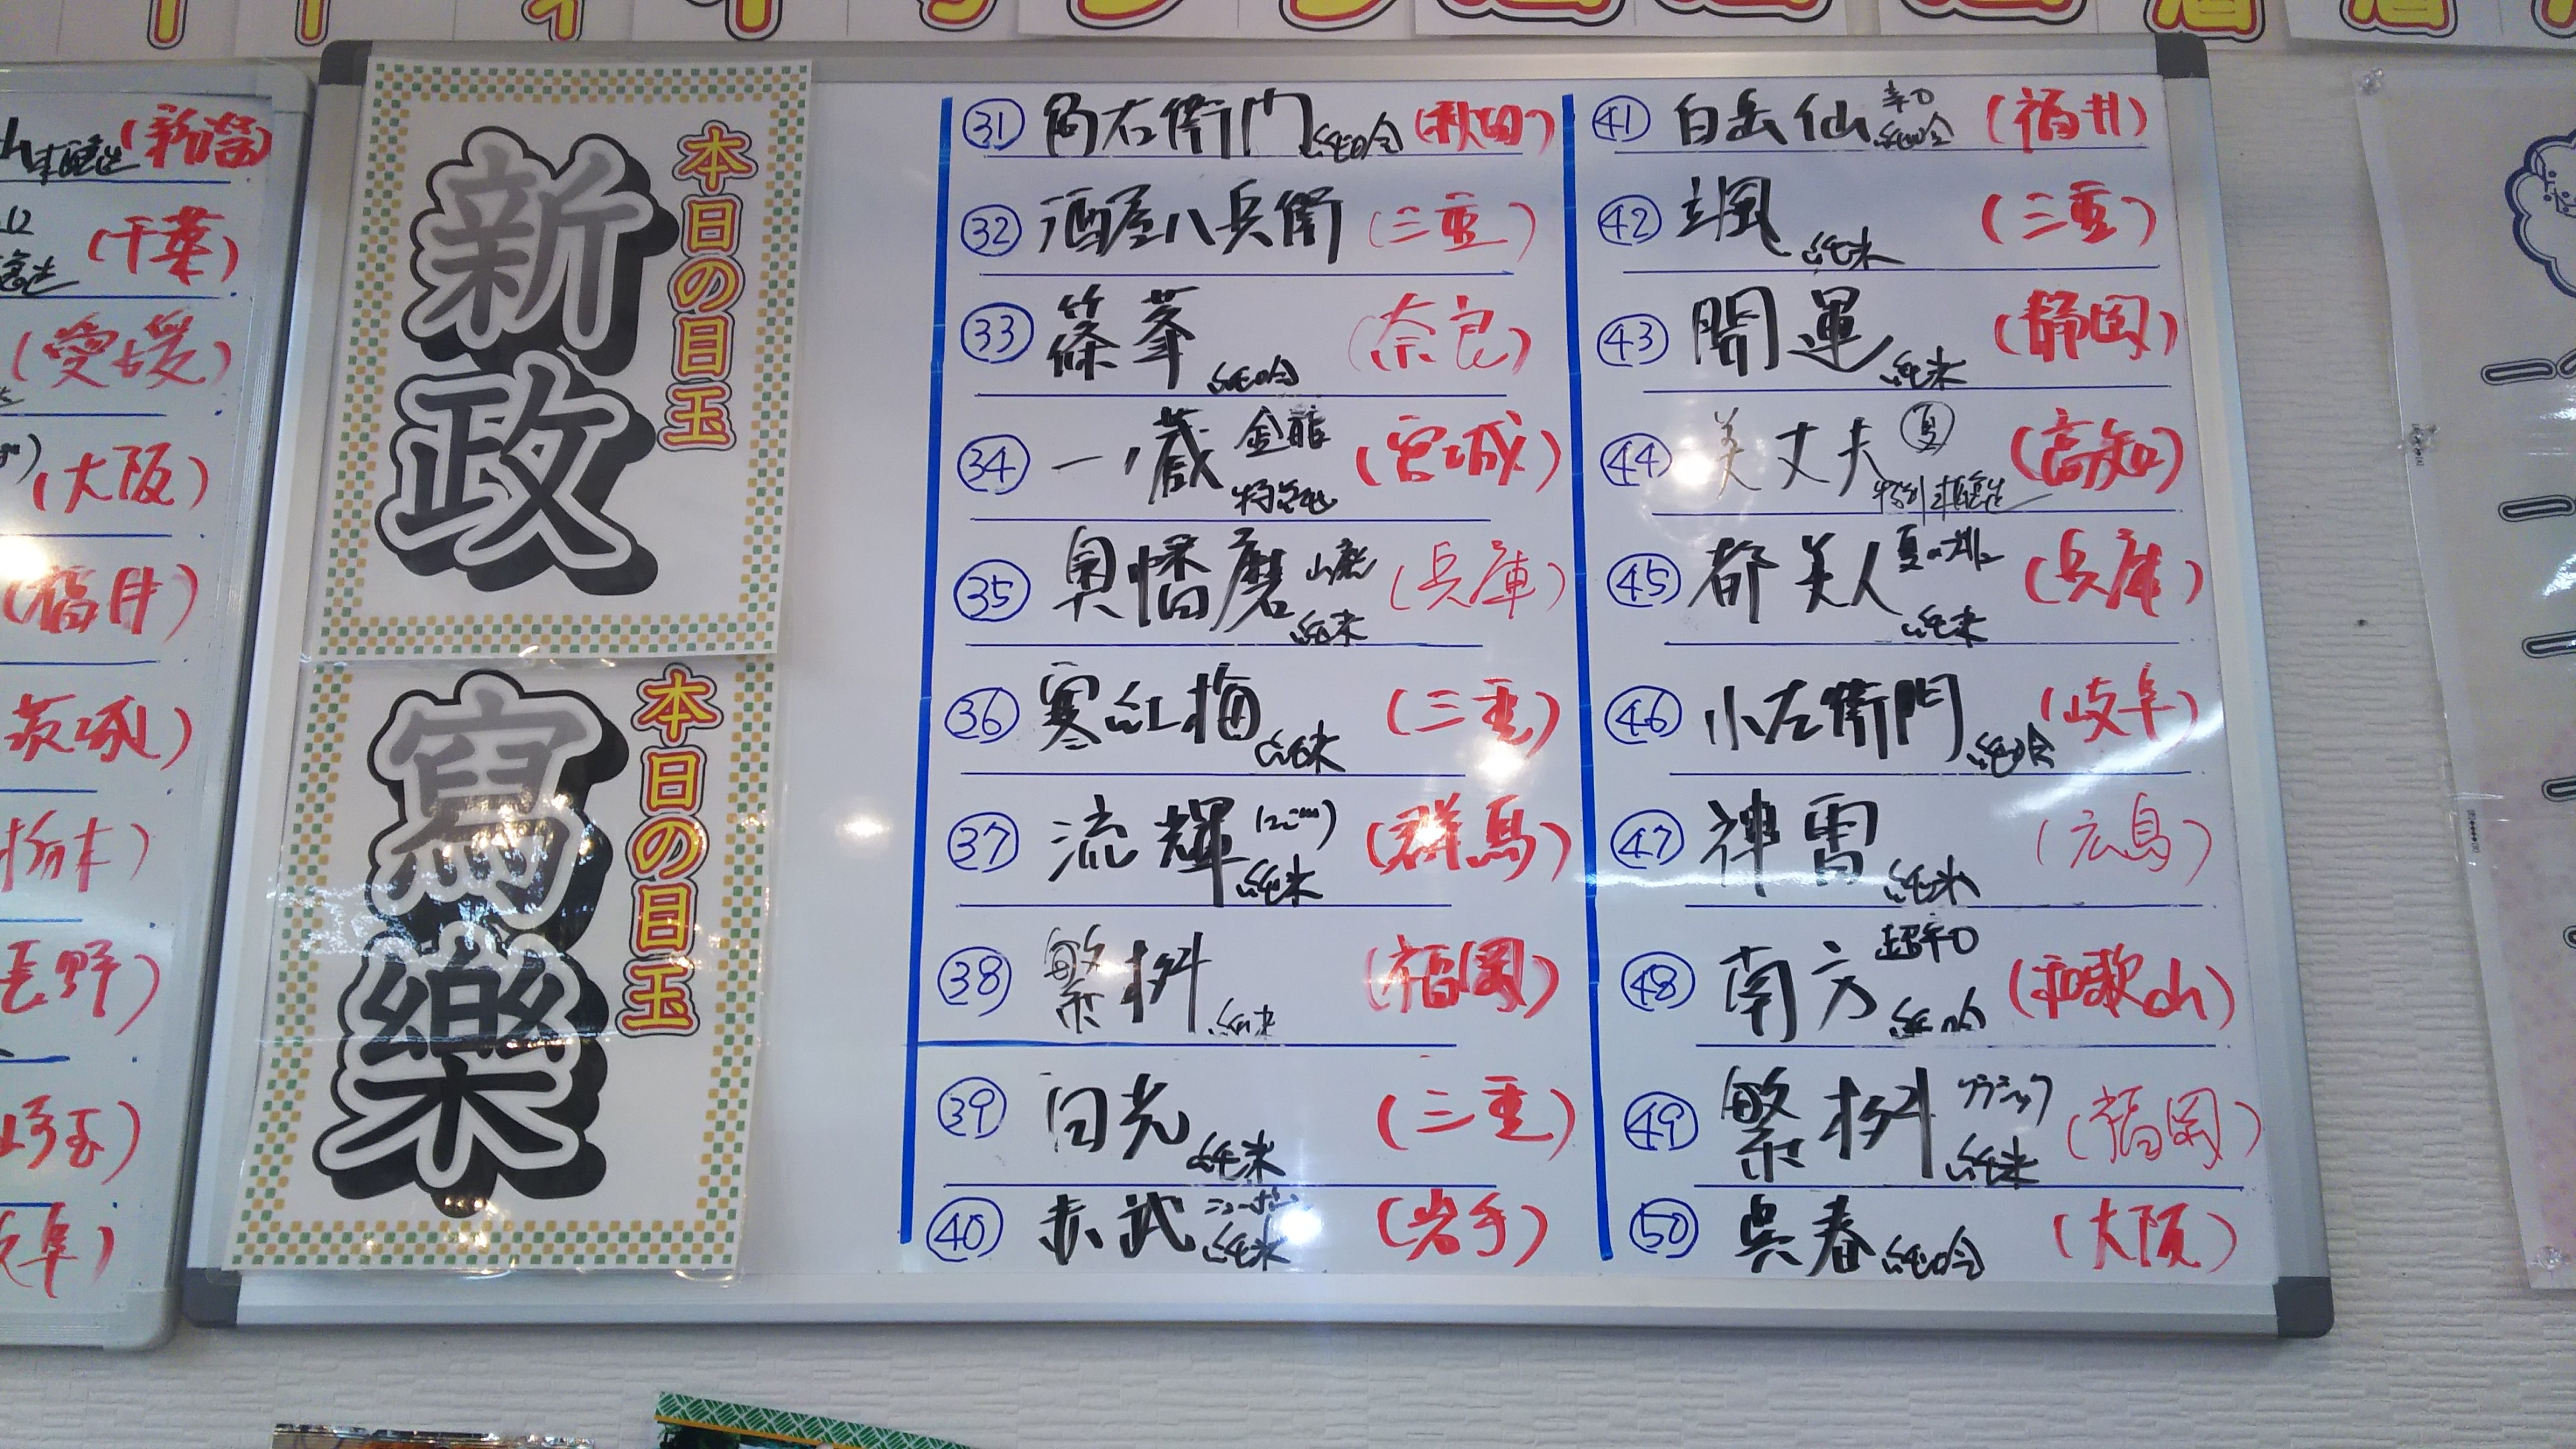 (新潟)
(千葉)
(愛媛)
(大阪)
(福井)
茨城)
栃木)
長野)
埼玉)
岐阜)
本日の目玉
新政
本日の目玉
寫樂
㉛ 角右衛門 純吟 (秋田)
㉜ 酒屋八兵衛 (三重)
㉝ 篠峯 純吟 (奈良)
㉞ 一ノ蔵 金龍 特純 (宮城)
㉟ 奥播磨 山廃 純米 (兵庫)
㊱ 寒紅梅 純米 (三重)
㊲ 流輝 純米 (群馬)
㊳ 繁桝 純米 (福岡)
㊴ 日光 純米 (三重)
㊵ 赤武 純米 (岩手)
㊶ 白岳仙 辛口 純吟 (福井)
㊷ 颯 純米 (三重)
㊸ 開運 純米 (静岡)
㊹ 美丈夫 夏 特別本醸造 (高知)
㊺ 都美人 純米 (兵庫)
㊻ 小左衛門 純吟 (岐阜)
㊼ 神雷 純米 (広島)
㊽ 南方 超辛口 純吟 (和歌山)
㊾ 繁桝 クラシック 純米 (福岡)
㊿ 呉春 純吟 (大阪)